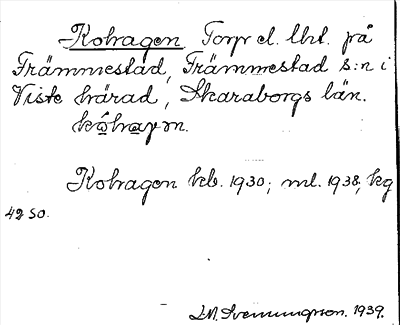 Kohagen Torp el. lht. på
Främmestad, Främmestad s:n i
Viste härad, Skaraborgs län.
Kohagen kb. 1930; ml. 1938, kg
42 SO.
Svenungson. 1939.